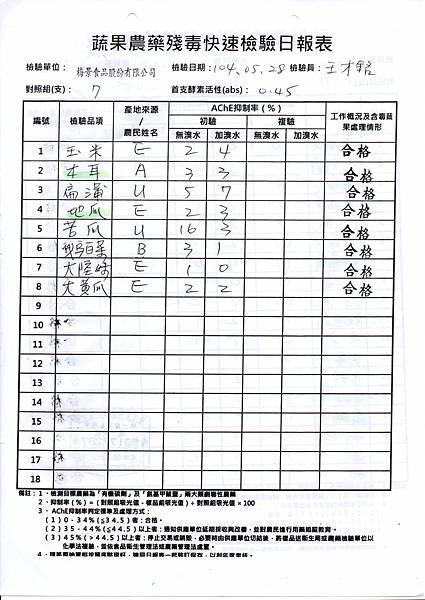 蔬果農藥殘毒快速檢驗日報表
檢驗單位： 梅景食品股份有限公司 檢驗日期：104.05.28 檢驗員：
對照組(支)： 7 首支酵素活性(abs)： 0.45
編號 檢驗品項 產地來源/農民姓名 AChE抑制率(%) 工作概況及含毒蔬果處理情形
初驗 複驗
無溴水 加溴水 無溴水 加溴水
1 玉米 E 2 4 合格
2 木耳 A 3 3 合格
3 扁蒲 U 5 7 合格
4 地瓜 E 2 3 合格
5 苦瓜 U 16 3 合格
6 B 3 1 合格
7 大陸妹 E 1 0 合格
8 大黃瓜 E 2 2 合格
9
10
11
12
13
14
15
16
17
18
備註：1、檢測目標農藥為「有機磷劑」及「氨基甲酸鹽」兩大類劇毒性農藥
2、抑制率(%)=(對照組吸光值-樣品組吸光值)÷對照組吸光值×100
3、AChE抑制率判定標準及處理方式：
(1)0-34%(≦34.5)者：合格。
(2)35-44%(≦44.5)以上者：通知供應單位延期採收與改善，並對農民進行用藥追蹤教育。
(3)45%(>44.5)以上者：停止交易或銷毀，必要時由供應單位切結後，將樣品送衛生局或農藥檢驗單位以
化學法複驗，並依食品衛生管理法或農藥管理法處置。